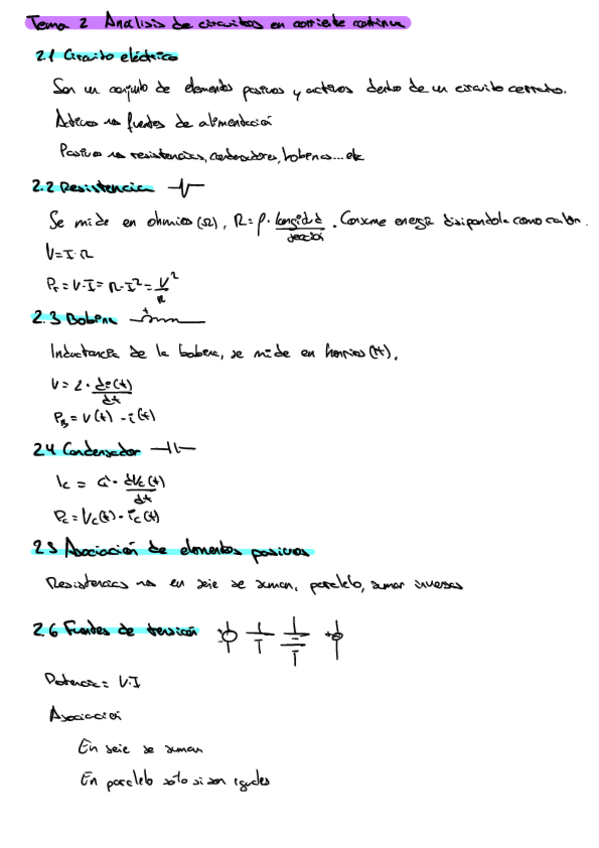 Tema 2 Análisis de circuitos en corriente continua
2.1 Circuito eléctrico
Son un conjunto de elementos pasivos y activos dentro de un circuito cerrado.
Activos → fuentes de alimentación
Pasivos → resistencias, condensadores, bobinas... etc
2.2 Resistencia
Se mide en ohmios (Ω), R = ρ · longitud / sección . Consume energía disipandola como calor.
V = I · R
Pr = V·I = R·I² = V² / R
2.3 Bobina
Inductancia de la bobina, se mide en henrios (H).
V = L · di(t) / dt
PB = V(t) · i(t)
2.4 Condensador
Ic = C · dVc(t) / dt
Pc = Vc(t) · ic(t)
2.5 Asociación de elementos pasivos
Resistencias → en serie se suman, paralelo, sumar inversas
2.6 Fuentes de tensión
Potencia = V·I
Asociación
En serie se suman
En paralelo solo si son iguales